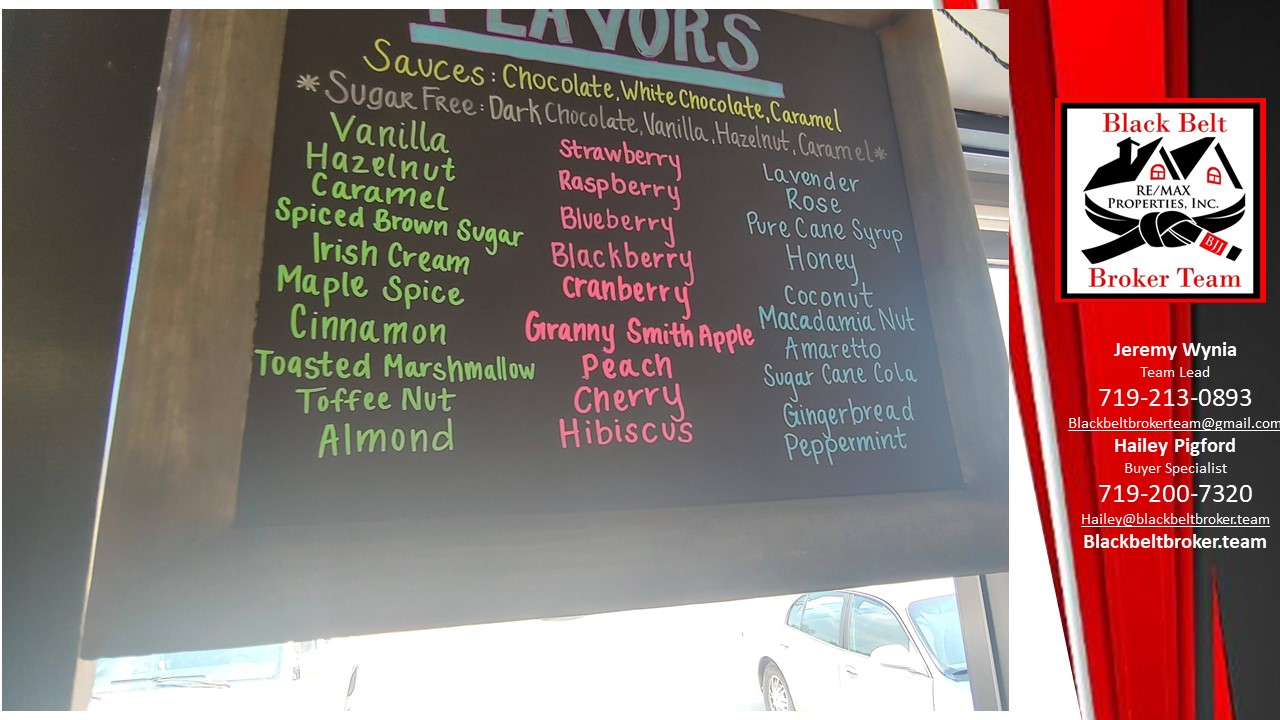 FLAVORS
Sauces: Chocolate, White Chocolate, Caramel
*Sugar Free: Dark Chocolate, Vanilla, Hazelnut, Caramel*
Vanilla
Hazelnut
Caramel
Spiced Brown Sugar
Irish Cream
Maple Spice
Cinnamon
Toasted Marshmallow
Toffee Nut
Almond
Strawberry
Raspberry
Blueberry
Blackberry
Cranberry
Granny Smith Apple
Peach
Cherry
Hibiscus
Lavender
Rose
Pure Cane Syrup
Honey
Coconut
Macadamia Nut
Amaretto
Sugar Cane Cola
Gingerbread
Peppermint
Black Belt
RE/MAX
PROPERTIES, INC.
BJJ
Broker Team
Jeremy Wynia
Team Lead
719-213-0893
Blackbeltbrokerteam@gmail.com
Hailey Pigford
Buyer Specialist
719-200-7320
Hailey@blackbeltbroker.team
Blackbeltbroker.team